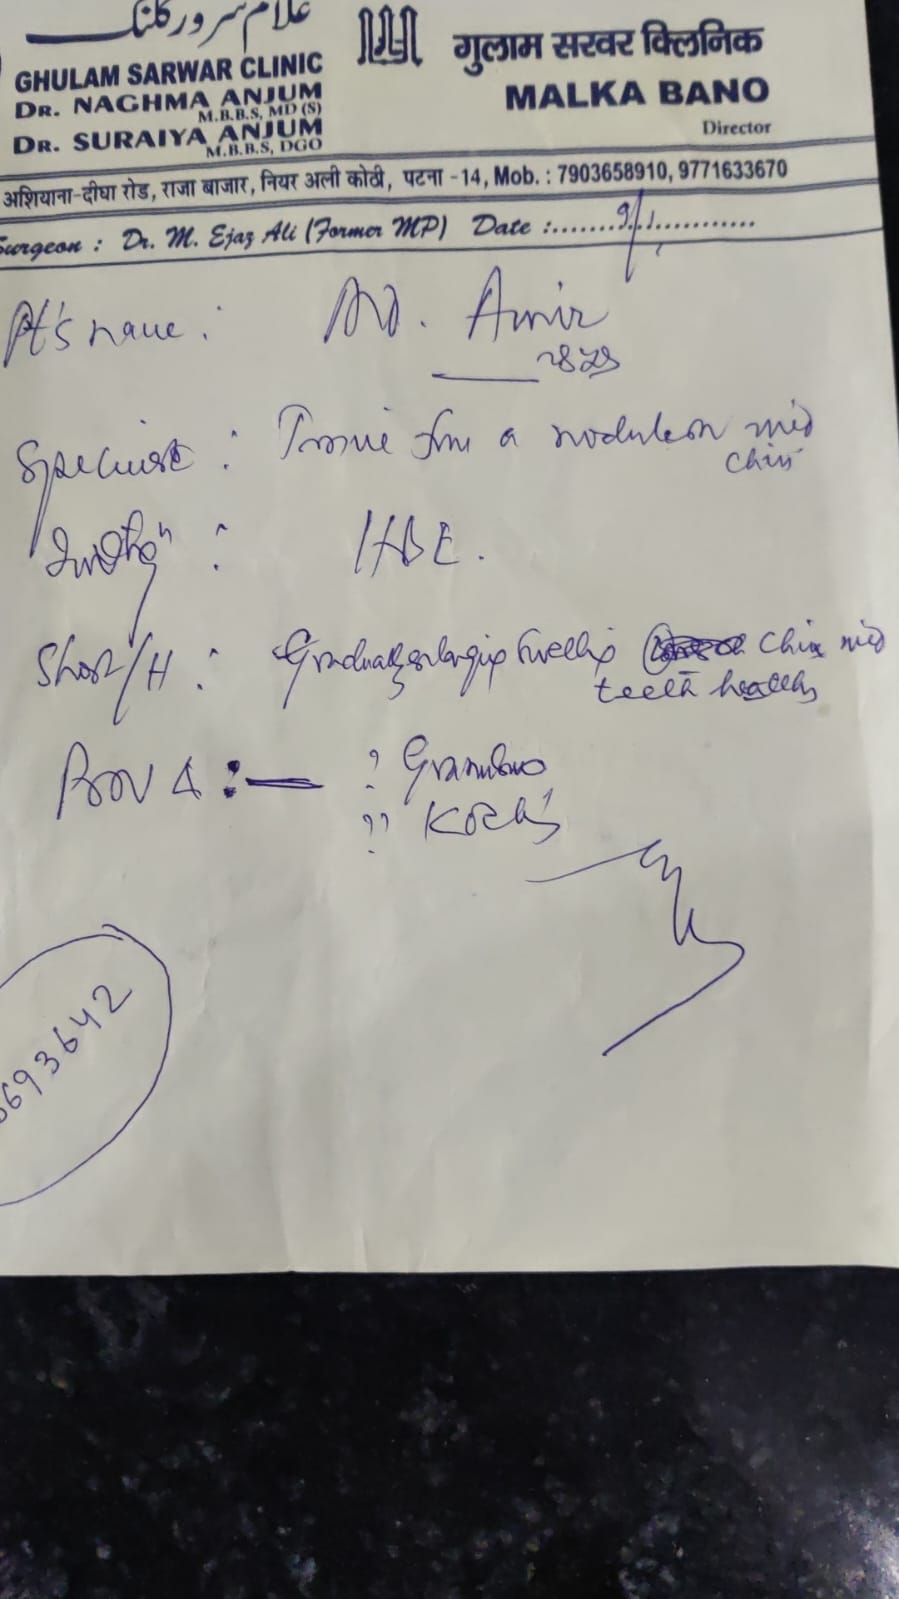 غلام سرور کلنک
GHULAM SARWAR CLINIC
DR. NAGHMA ANJUM
M.B.B.S, MD (S)
DR. SURAIYA ANJUM
M.B.B.S, DGO
गुलाम सरवर क्लिनिक
MALKA BANO
Director
अशियाना-दीघा रोड, राजा बाजार, नियर अली कोठी, पटना -14, Mob. : 7903658910, 9771633670
Surgeon : Dr. M. Ejaz Ali (Former MP) Date :.......9/1............
Pt's name : MD. Amir
Specimen : Tissue from a nodule on mid
chin
: HBE.
Short/H : Gradually enlarging swelling chin mid
teeth healthy
Prov Δ :— ? Granuloma
?? Koch's
693642